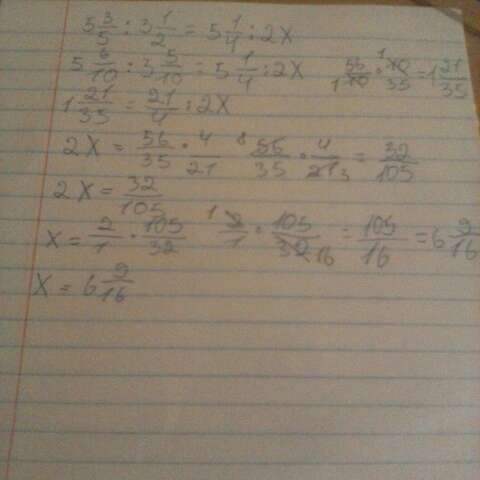 5 3/5 : 3 1/2 = 5 1/4 : 2X
5 6/10 : 3 5/10 = 5 1/4 : 2X   56/10 · 10/35 = 1 21/35
1 21/35 = 21/4 : 2X
2X = 56/35 · 4/21   56/35 · 4/21 = 32/105
2X = 32/105
X = 2/1 · 105/32   2/1 · 105/32 = 105/16 = 6 9/16
X = 6 9/16